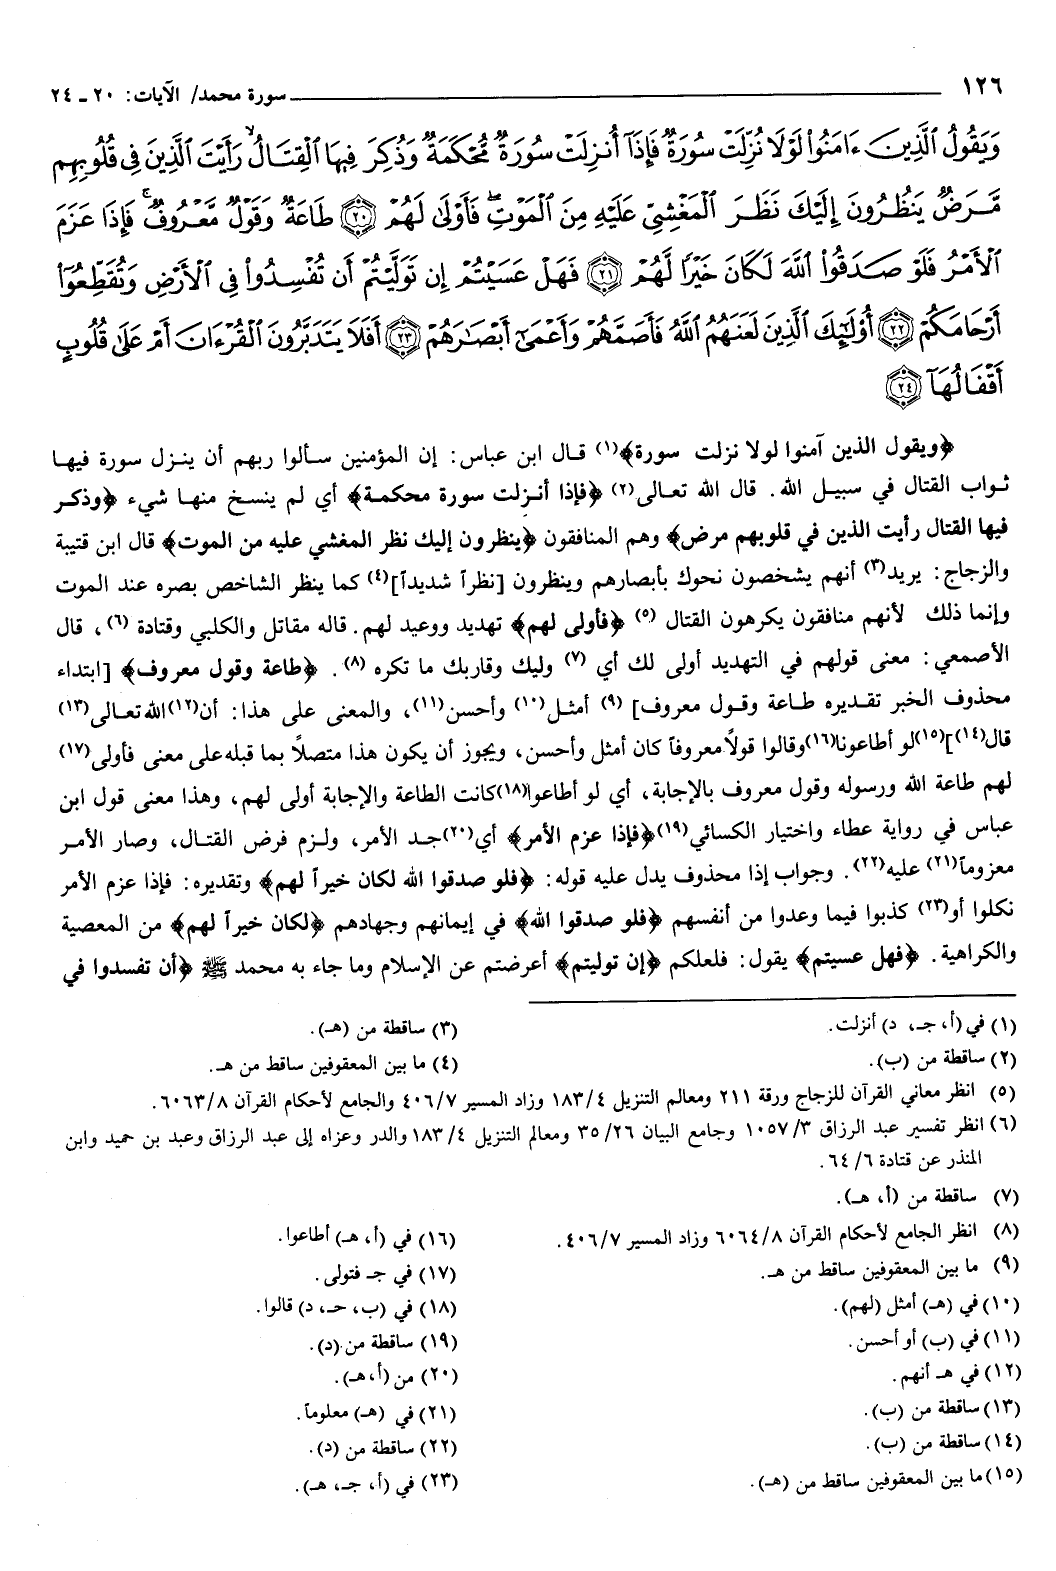 ١٢٦ سورة محمد/ الآيات: ٢٠ ـ ٢٤
وَيَقُولُ ٱلَّذِينَ ءَامَنُوا۟ لَوْلَا نُزِّلَتْ سُورَةٌ فَإِذَآ أُنزِلَتْ سُورَةٌ مُّحْكَمَةٌ وَذُكِرَ فِيهَا ٱلْقِتَالُ رَأَيْتَ ٱلَّذِينَ فِى قُلُوبِهِم
مَّرَضٌ يَنظُرُونَ إِلَيْكَ نَظَرَ ٱلْمَغْشِىِّ عَلَيْهِ مِنَ ٱلْمَوْتِ فَأَوْلَىٰ لَهُمْ ٢٠ طَاعَةٌ وَقَوْلٌ مَّعْرُوفٌ فَإِذَا عَزَمَ
ٱلْأَمْرُ فَلَوْ صَدَقُوا۟ ٱللَّهَ لَكَانَ خَيْرًا لَّهُمْ ٢١ فَهَلْ عَسَيْتُمْ إِن تَوَلَّيْتُمْ أَن تُفْسِدُوا۟ فِى ٱلْأَرْضِ وَتُقَطِّعُوٓا۟
أَرْحَامَكُمْ ٢٢ أُو۟لَٰٓئِكَ ٱلَّذِينَ لَعَنَهُمُ ٱللَّهُ فَأَصَمَّهُمْ وَأَعْمَىٰٓ أَبْصَٰرَهُمْ ٢٣ أَفَلَا يَتَدَبَّرُونَ ٱلْقُرْءَانَ أَمْ عَلَىٰ قُلُوبٍ
أَقْفَالُهَآ ٢٤
﴿ويقول الذين آمنوا لولا نزلت سورة﴾(١) قال ابن عباس: إن المؤمنين سألوا ربهم أن ينزل سورة فيها
ثواب القتال في سبيل الله. قال الله تعالى(٢) ﴿فإذا أنزلت سورة محكمة﴾ أي لم ينسخ منها شيء ﴿وذكر
فيها القتال رأيت الذين في قلوبهم مرض﴾ وهم المنافقون ﴿ينظرون إليك نظر المغشي عليه من الموت﴾ قال ابن قتيبة
والزجاج: يريد(٣) أنهم يشخصون نحوك بأبصارهم وينظرون [نظراً شديداً](٤) كما ينظر الشاخص بصره عند الموت
وإنما ذلك لأنهم منافقون يكرهون القتال (٥) ﴿فأولى لهم﴾ تهديد ووعيد لهم. قاله مقاتل والكلبي وقتادة (٦)، قال
الأصمعي: معنى قولهم في التهديد أولى لك أي (٧) وليك وقاربك ما تكره (٨). ﴿طاعة وقول معروف﴾ [ابتداء
محذوف الخبر تقديره طاعة وقول معروف] (٩) أمثل(١٠) وأحسن(١١)، والمعنى على هذا: أن(١٢)الله تعالى(١٣)
قال(١٤)](١٥)لو أطاعونا(١٦)وقالوا قولاً معروفاً كان أمثل وأحسن، ويجوز أن يكون هذا متصلاً بما قبله على معنى فأولى(١٧)
لهم طاعة الله ورسوله وقول معروف بالإجابة، أي لو أطاعوا(١٨)كانت الطاعة والإجابة أولى لهم، وهذا معنى قول ابن
عباس في رواية عطاء واختيار الكسائي(١٩)﴿فإذا عزم الأمر﴾ أي(٢٠)جد الأمر، ولزم فرض القتال، وصار الأمر
معزوماً(٢١) عليه(٢٢). وجواب إذا محذوف يدل عليه قوله: ﴿فلو صدقوا الله لكان خيراً لهم﴾ وتقديره: فإذا عزم الأمر
نكلوا أو(٢٣) كذبوا فيما وعدوا من أنفسهم ﴿فلو صدقوا الله﴾ في إيمانهم وجهادهم ﴿لكان خيراً لهم﴾ من المعصية
والكراهية. ﴿فهل عسيتم﴾ يقول: فلعلكم ﴿إن توليتم﴾ أعرضتم عن الإسلام وما جاء به محمد ﷺ ﴿أن تفسدوا في
(١) في (أ، جـ، د) أنزلت.
(٢) ساقطة من (ب).
(٣) ساقطة من (هـ).
(٤) ما بين المعقوفين ساقط من هـ.
(٥) انظر معاني القرآن للزجاج ورقة ٢١١ ومعالم التنزيل ١٨٣/٤ وزاد المسير ٤٠٦/٧ والجامع لأحكام القرآن ٦٠٦٣/٨.
(٦) انظر تفسير عبد الرزاق ١٠٥٧/٣ وجامع البيان ٣٥/٢٦ ومعالم التنزيل ١٨٣/٤ والدر وعزاه إلى عبد الرزاق وعبد بن حميد وابن
المنذر عن قتادة ٦٤/٦.
(٧) ساقطة من (أ، هـ).
(٨) انظر الجامع لأحكام القرآن ٦٠٦٤/٨ وزاد المسير ٤٠٦/٧.
(٩) ما بين المعقوفين ساقط من هـ.
(١٠) في (هـ) أمثل (لهم).
(١١) في (ب) أو أحسن.
(١٢) في هـ أنهم.
(١٣) ساقطة من (ب).
(١٤) ساقطة من (ب).
(١٥) ما بين المعقوفين ساقط من (هـ).
(١٦) في (أ، هـ) أطاعوا.
(١٧) في جـ فتولى.
(١٨) في (ب، حـ، د) قالوا.
(١٩) ساقطة من (د).
(٢٠) من (أ، هـ).
(٢١) في (هـ) معلوماً.
(٢٢) ساقطة من (د).
(٢٣) في (أ، جـ، هـ).